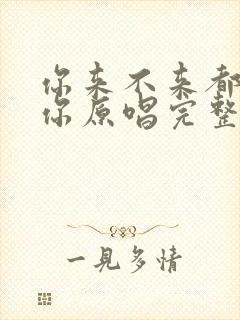 你来不来都
你原唱完整
一見多情